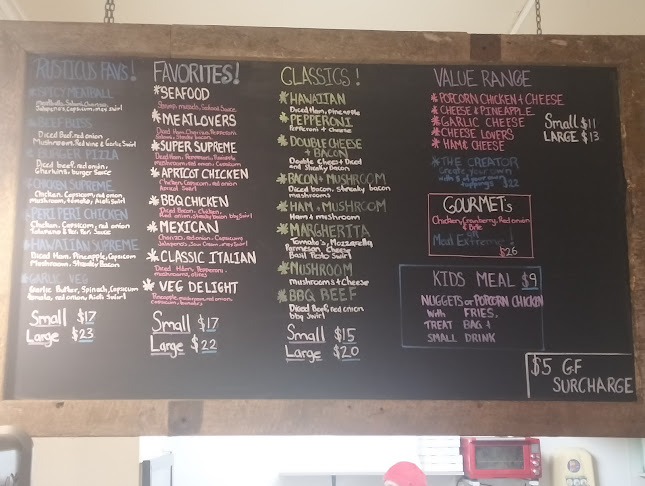 RUSTICUS FAVS!
*SPICY MEATBALL
Meatballs, Salami, Chorizo,
Jalapeno's, Capsicum, mey Swirl
*BEEF BLISS
Diced Beef, red onion
Mushroom, Red wine & Garlic Swirl
*BURGER PIZZA
Diced beef, red onion,
Gherkins, burger Sauce
*CHICKEN SUPREME
Chicken, Capsicum, red onion
mushroom, tomato, Aioli Swirl
*PERI PERI CHICKEN
Chicken, Capsicum, red onion
Jalapeno & Peri Peri Sauce
*HAWAIIAN SUPREME
Diced Ham, Pineapple, Capsicum
Mushroom, Streaky Bacon
*GARLIC VEG
Garlic Butter, Spinach, Capsicum
tomato, red onion, Aioli Swirl
Small $17
Large $23
FAVORITES!
*SEAFOOD
Shrimp, mussels, Seafood Sauce
*MEATLOVERS
Diced Ham, Chorizo, Pepperoni
Salami, Streaky bacon
*SUPER SUPREME
Diced Ham, Pepperoni, Pineapple
mushroom, red onion, Capsicum
*APRICOT CHICKEN
Chicken, Capsicum, red onion
Apricot Swirl
*BBQ CHICKEN
Diced Bacon, Chicken,
Red onion, streaky bacon bbq Swirl
*MEXICAN
Chorizo, red onion, Capsicum
Jalapeno's, Sour Cream, mey Swirl
*CLASSIC ITALIAN
Diced Ham, Pepperoni,
mushrooms, olives
*VEG DELIGHT
Pineapple, mushroom, red onion,
Capsicum, tomato's
Small $17
Large $22
CLASSICS!
*HAWAIIAN
Diced Ham, Pineapple
*PEPPERONI
Pepperoni + Cheese
*DOUBLE CHEESE
+ BACON
Double Cheese + Diced
and Streaky Bacon
*BACON + MUSHROOM
Diced bacon, Streaky bacon
mushrooms
*HAM + MUSHROOM
Ham + mushroom
*MARGHERITA
Tomato's, Mozzarella
Parmesan Cheese
Basil Pesto Swirl
*MUSHROOM
mushrooms + Cheese
*BBQ BEEF
Diced Beef, red onion
bbq Swirl
Small $15
Large $20
VALUE RANGE
*POPCORN CHICKEN + CHEESE
*CHEESE & PINEAPPLE
*GARLIC CHEESE
*CHEESE LOVERS
*HAM & CHEESE
Small $11
LARGE $13
*THE CREATOR
Create your own
with 5 of your own
toppings $22
GOURMET'S
Chicken, Cranberry, Red onion
& Brie
or
Meat Extreme!
$26
KIDS MEAL $9
NUGGETS or POPCORN CHICKEN
With FRIES,
TREAT BAG +
SMALL DRINK
$5 GF
SURCHARGE